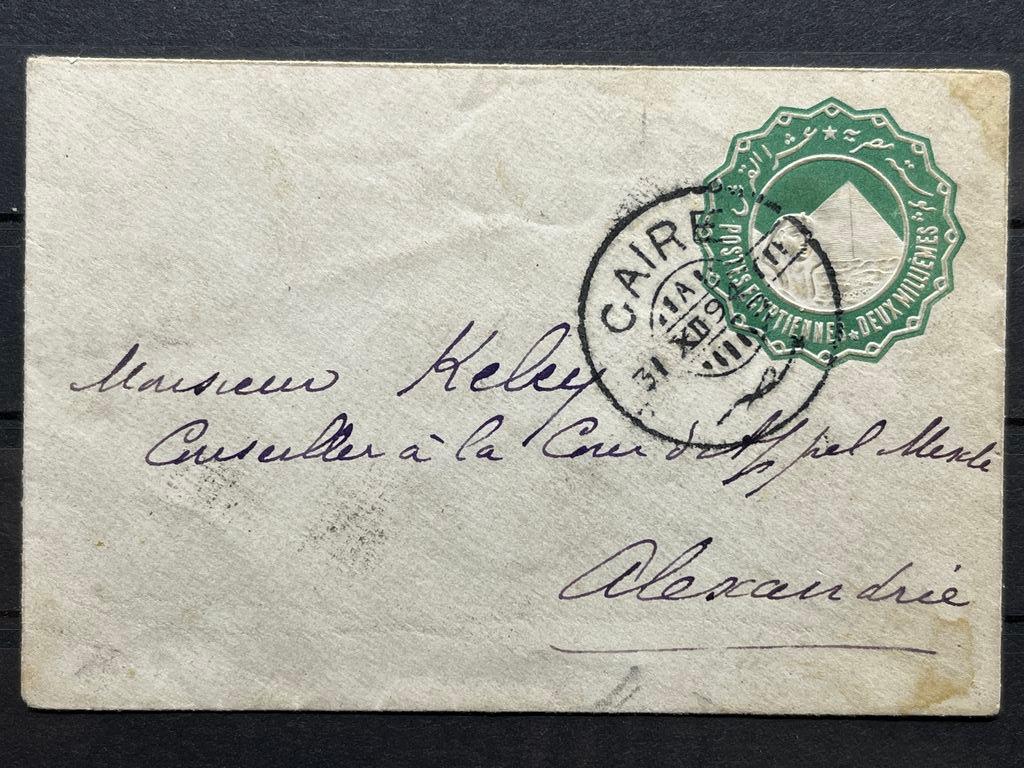 بوستة مصرية ★ عشر القرش
POSTES EGYPTIENNES. DEUX MILLIÈMES
CAIRE
31 XII
Monsieur Kelsey
Conseiller à la Cour d'Appel Mixte
Alexandrie